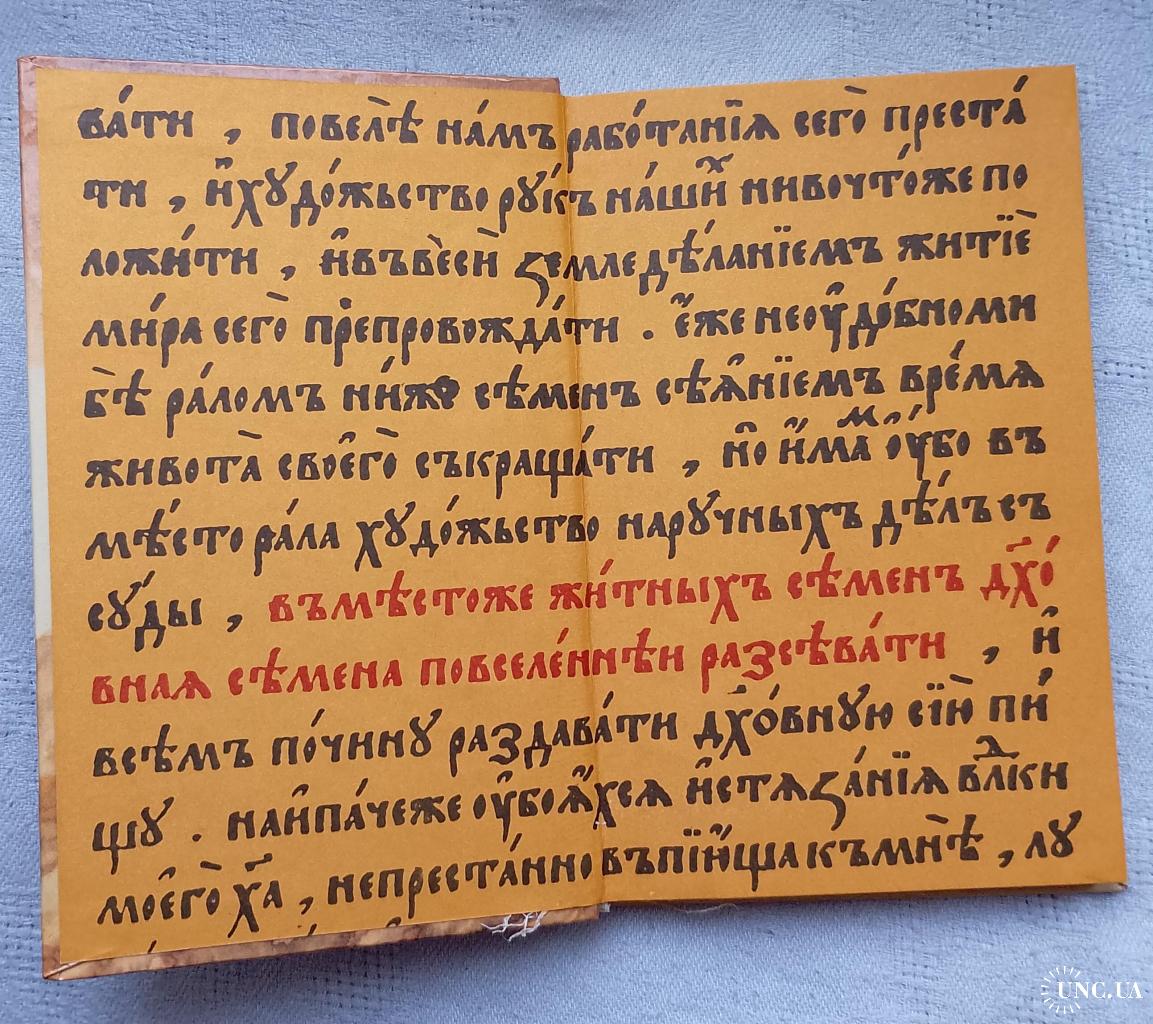 ва́ти , повелѣ̀ на́мъ рабо́танїѧ сего̀ преста́
ти , и҆҆хꙋдо́жьство рꙋ́къ на́шиⷯ нивочто́же по
ложи́ти , и҆въвѐси ꙁемледѣ́ланїемъ житїѐ
ми́ра сего̀ препровожда́ти . є҆́же неоу҆до́бноми
бѣ̀ ра́ломъ ни́же сѣ́менъ сѣ́ѧнїемъ вре́мѧ
живота̀ своего̀ съкраща́ти , но и҆́маⷨ оу҆́бо въ
мѣ́сто ра́ла хꙋдо́жьство нарꙋ́чныхъ дѣ́лъ съ
сꙋ́ды , въмѣ́стоже жи́тныхъ сѣ́менъ дх҃о́
внаѧ сѣ́мена повселе́ннѣи разсѣва́ти , и҆
всѣ́мъ по́чинꙋ раздава́ти дх҃о́внꙋю сїю̀ пи́
щꙋ . наи҆па́чеже оу҆боѧ́хсѧ и҆стѧꙁа́нїѧ влⷣки
моего̀ ха҃ , непреста́нно въпїю́ща къмнѣ̀ , лꙋ
UNC.UA